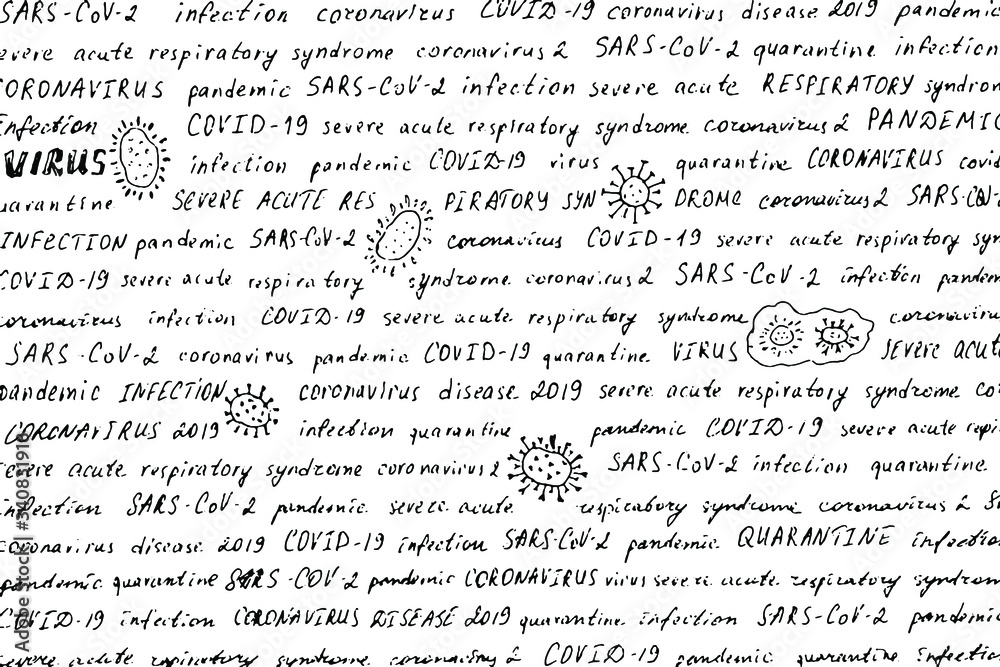 SARS-CoV-2 infection coronavirus COVID-19 coronavirus disease 2019 pandemic
evere acute respiratory syndrome coronavirus 2 SARS-CoV-2 quarantine infection
ORONAVIRUS pandemic SARS-CoV-2 infection severe acute RESPIRATORY syndrom
Infection COVID-19 severe acute respiratory syndrome coronavirus 2 PANDEMIC
VIRUS infection pandemic COVID-19 virus quarantine CORONAVIRUS covid
uarantine SEVERE ACUTE RES PIRATORY SYN DROME coronavirus 2 SARS-CoV-2
INFECTION pandemic SARS-CoV-2 coronavirus COVID-19 severe acute respiratory syn
COVID-19 severe acute respiratory syndrome coronavirus 2 SARS-CoV-2 infection pandem
coronavirus infection COVID-19 severe acute respiratory syndrome coronaviru
SARS-CoV-2 coronavirus pandemic COVID-19 quarantine VIRUS SEVERE ACUTE
pandemic INFECTION coronavirus disease 2019 severe acute respiratory syndrome co
CORONAVIRUS 2019 infection quarantine pandemic COVID-19 severe acute repi
severe acute respiratory syndrome coronavirus 2 SARS-CoV-2 infection quarantine
infection SARS-CoV-2 pandemic severe acute respiratory syndrome coronavirus 2 S
coronavirus disease 2019 COVID-19 infection SARS-CoV-2 pandemic QUARANTINE infection
pandemic quarantine SARS-COV-2 pandemic CORONAVIRUS virus severe acute respiratory syndrom
COVID-19 infection CORONAVIRUS DISEASE 2019 quarantine infection SARS-CoV-2 pandemic
severe acute respiratory syndrome coronavirus 2 COVID-19 pandemic quarantine infection
Adobe Stock | #340831916